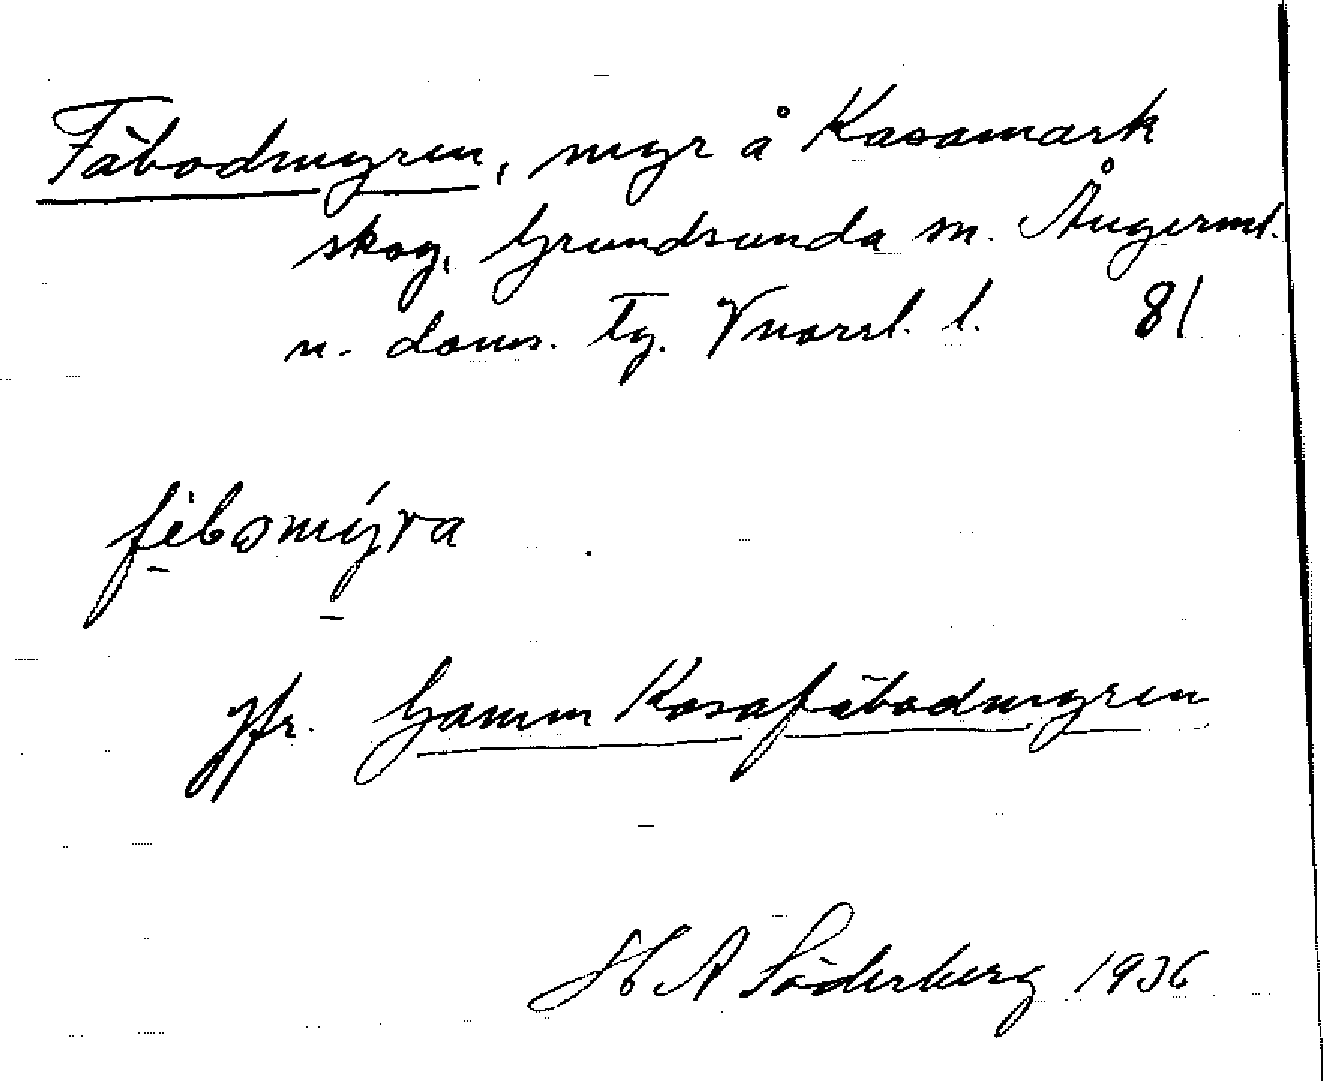 Fäbodmyren, myr å Kasamark
skog, Grundsunda sn. Ångerml.
n. doms. Tg. Vnorrl. l. 81
fèbomýra
jfr. Gamm Kasafäbodmyren
H A Söderberg 1936